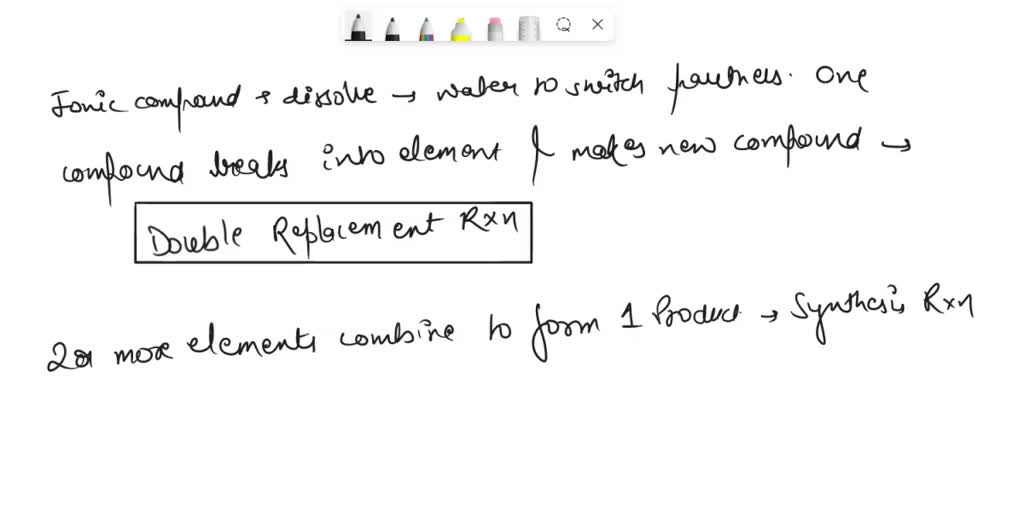 Ionic compound & dissolve → water to switch partners. One
compound breaks into element & makes new compound →
Double Replacement Rxn
2 or more elements combine to form 1 Product → Synthesis Rxn